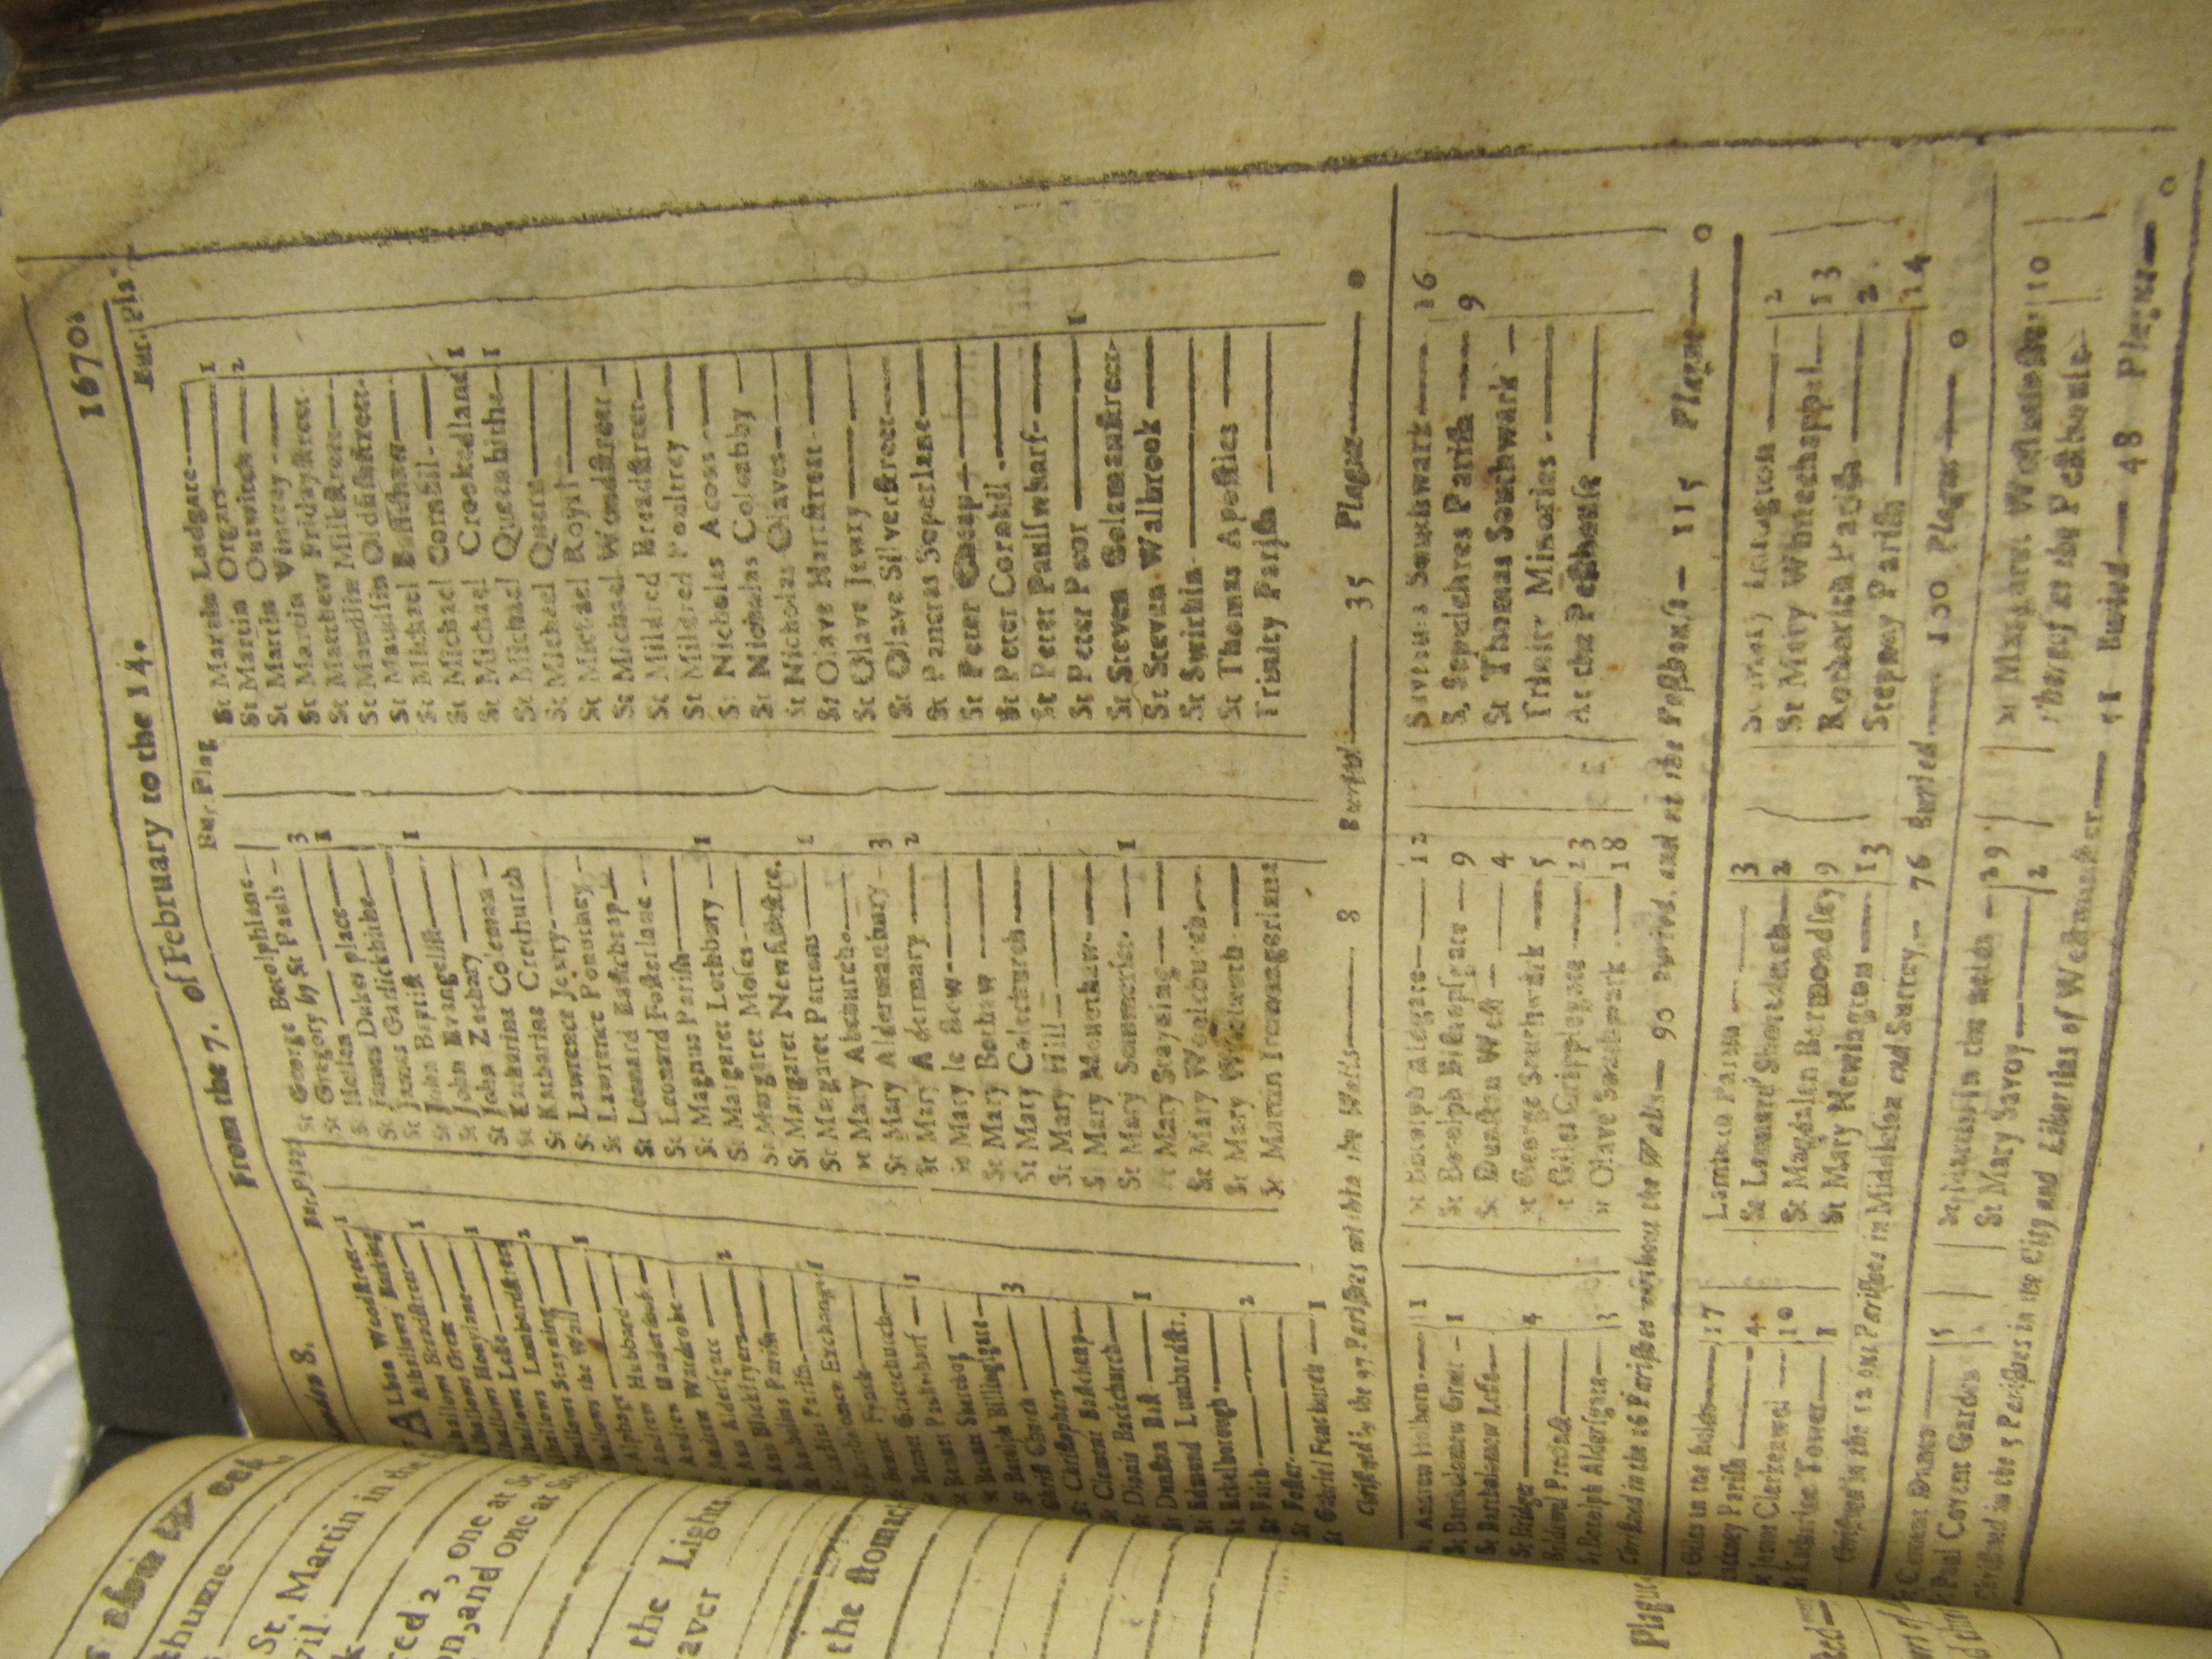 London 8. From the 7. of February to the 14. 1670.
Bur. Plag
St Alban Woodstreet 1
Alhallows Barking
Alhallows Breadstreet 1
Alhallows Great
Alhallows Honylane 1
Alhallows Lesse
Alhallows Lombardstreet 2
Alhallows Stayning
Alhallows the Wall 1
St Alphage
St Andrew Hubbard
St Andrew Undershaft
St Andrew Wardrobe
St Ann Aldersgate 2
St Ann Blackfryers
St Antholins Parish
St Austins Parish 1
Exchange
St Bennet Fynck
St Bennet Gracechurch
St Bennet Paulswharf 1
St Bennet Sherehog
St Botolph Billingsgate
Christ Church 3
St Christophers
St Clement Eastcheap
St Dionis Backchurch
St Dunstan East 1
St Edmund Lumbardstr.
St Ethelborough
St Faith 2
St Foster
St Gabriel Fenchurch 1
Bur. Plag
St George Botolphlane
St Gregory by St Pauls 3
St Hellen 1
St James Dukes place
St James Garlickhithe
St John Baptist 1
St John Evangelist
St John Zachary
St Katharine Coleman
St Katharine Creechurch
St Lawrence Jewry
St Lawrence Pountney
St Leonard Eastcheap
St Leonard Fosterlane
St Magnus Parish
St Margaret Lothbury 1
St Margaret Moses
St Margaret Newfishstre.
St Margaret Pattons 1
St Mary Abchurch
St Mary Aldermanbury 3
St Mary Aldermary 2
St Mary le Bow
St Mary Bothaw
St Mary Colechurch
St Mary Hill
St Mary Mounthaw
St Mary Sommerset 1
St Mary Stayning
St Mary Woolchurch
St Mary Woolnoth
St Martin Iremongerlane
Bur. Pla
St Martin Ludgate 1
St Martin Orgars 2
St Martin Outwitch
St Martin Vintrey
St Matthew Fridaystreet
St Maudlin Milkstreet
St Maudlin Oldfishstreet
St Michael Bassishaw
St Michael Cornhil 1
St Michael Crookedlane 1
St Michael Queenhithe
St Michael Quern
St Michael Royal
St Michael Woodstreet
St Mildred Breadstreet
St Mildred Poultrey
St Nicholas Acons
St Nicholas Coleabby
St Nicholas Olaves
St Olave Hartstreet
St Olave Jewry
St Olave Silverstreet
St Pancras Soperlane
St Peter Cheap
St Peter Cornhil
St Peter Paulswharf
St Peter Poor 1
St Steven Colemanstreet
St Steven Walbrook
St Swithin
St Thomas Apostles
Trinity Parish
Christned in the 97 Parishes within the Walls 8 Buried 35 Plague 0
St Andrew Holborn 11
St Bartholomew Great 1
St Bartholomew Lesse
St Bridget 4
Bridewel Precinct
St Botolph Aldersgate 3
St Botolph Aldgate 12
St Botolph Bishopsgate 9
St Dunstan West 4
St George Southwark 5
St Giles Cripplegate 23
St Olave Southwark 18
Saviours Southwark 16
S. Sepulchres Parish 9
St Thomas Southwark
Trinity Minories
At the Pesthouse
Christned in the 16 Parishes without the Walls 90 Buried, and at the Pesthouse 115 Plague 0
St Giles in the fields 17
Hackney Parish 4
St James Clerkenwel 10
St Katharine Tower 8
Lambeth Parish 3
St Leonard Shoreditch 2
St Magdalen Bermondsey 9
St Mary Newington 13
St Mary Islington 2
St Mary Whitechappel 13
Rotherith Parish 2
Stepney Parish 14
Christned in the 12 out Parishes in Middlesex and Surrey 76 Buried 100 Plague 0
St Clement Danes 5
St Paul Covent Garden
St Martin in the fields 29
St Mary Savoy 2
St Margaret Westminster 10
Whereof at the Pesthouse
Christned in the 5 Parishes in the City and Liberties of Westminster 51 Buried 48 Plague 0
St. Martin in the
one at St.
and one at
the Light
the stomach
Plague